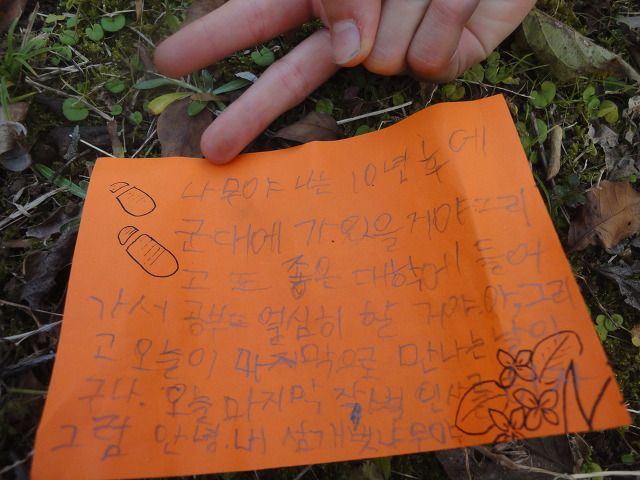 나무야 나는 10년 후에
군대에 가 있을 거야 그리
고 또 좋은 대학에 들어
가서 공부도 열심히 할 거야. 아, 그리
고 오늘이 마지막으로 만나는 날이
구나. 오늘 마지막 작별 인사를
그럼 안녕. 내 삼개벚나무야